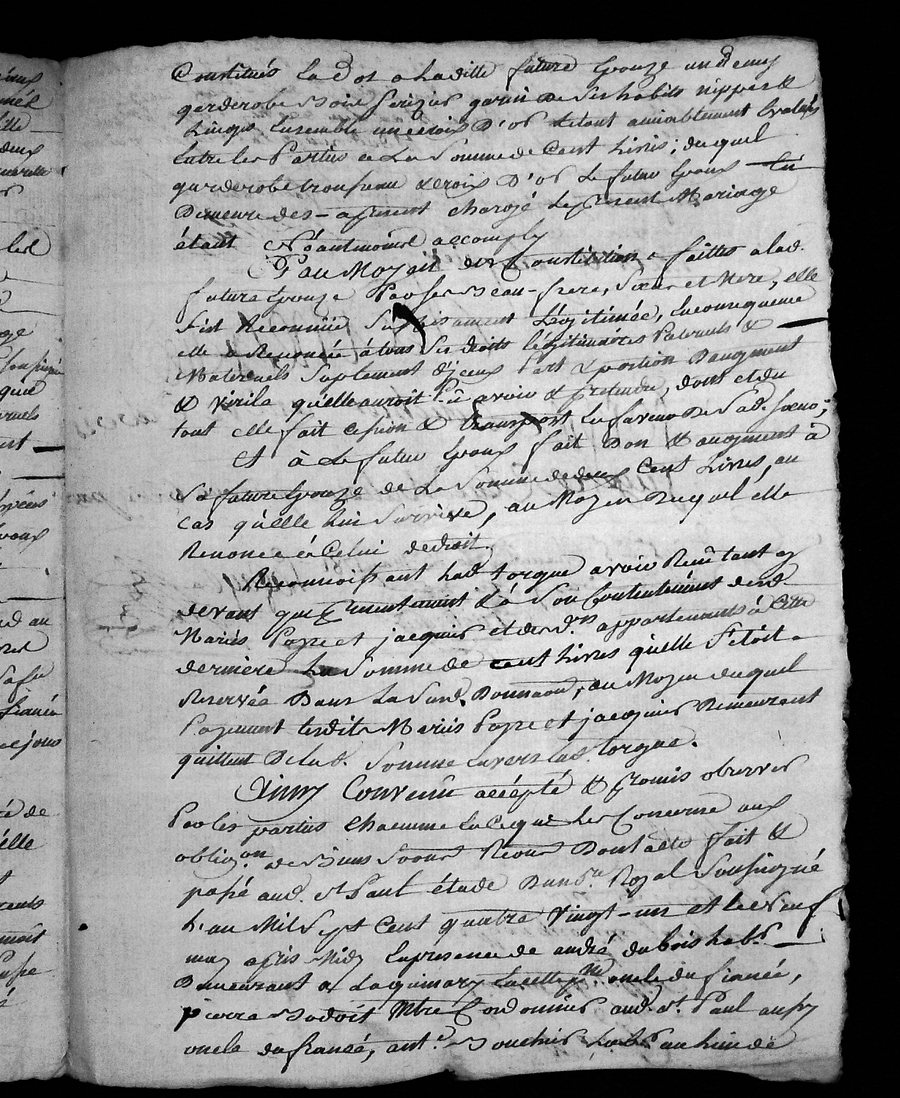 Constitués La dot a Laditte future Epouze un demy
garderobe Bois Serizier garni De Ses habits nippes &
Linges Ensemble une croix D'or Le tout amiablement Evalué
Entre les Parties a La Somme de Cent Livres; du quel
garderobe trousseau & croix D'or Le futur Epoux En
Demeure des-apresent chargé Le present Mariage
étant Néantmoins accomply
Et au Moyen des Constitution faittes a lad.
future Epouze Par Ses Beau-frere, Sœur et Mere, elle
S'est Reconnüe Suffisament Légitimée, En consequence
elle a Renoncée à tous Ses droits légitimaires Paternels &
Maternels Suplement d'iceux Part & portion D'augment
& Virile qu'elle auroit Pû avoir & Pretendre, dont et du
tout elle fait cession & transport En faveur De Sad. Sœur;
Et à Le futur Epoux fait Don & augment à
Sa future Epouze de La Somme de deux Cent Livres, au
cas qu'elle Lui Survive, au Moyen Duquel elle
Renonce à Celui de droit.
Reconnoissant lad. torgue avoir Reçu tant cy
devant que Presentement & à Son Contentement desd.
Mariés Payre et jacquier et des d.rs appartenants à Cette
derniere La Somme de cent Livres qu'elle S'étoit
Reservée Dans La Susd. Donnaon, au Moyen duquel
Payement Lesdits Mariés Payre et jacquier Demeurent
quittent De lad. Somme Envers lad. torgue.
Ainsy Convenu accépté & Promis observer
Par les parties Chacunne En ce qui Les Concerne aux
obligaon. de Biens Dont acte fait &
passé aud. St Paul étude Du no.re Royal Soussigné
L'an Mil Sept Cent quatre Vingt-un et le Neuf
may après Midy En presence de andré dubois hab.t
Demeurant a oncle du fiancée,
pierre Badoit M.tre Cordonnier aud. St. Paul aussy
oncle du fiancé, ant.e Souchier